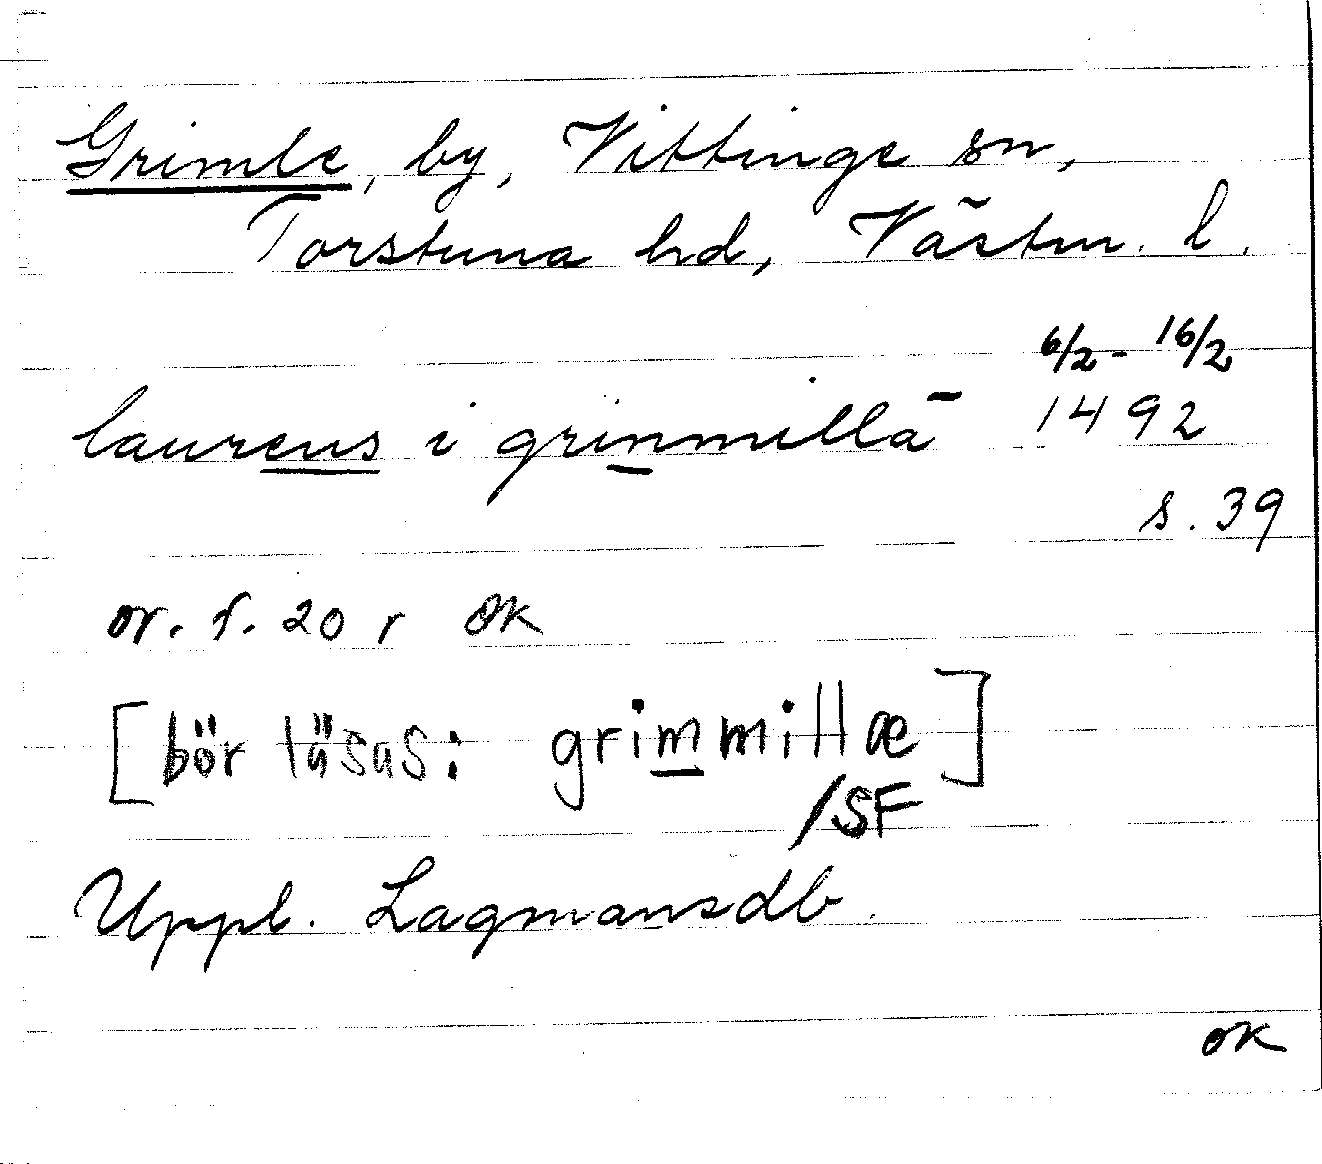 Grimle, by, Vittinge sn,
Torstuna hd, Västm. l.
6/2 - 16/2
laurens i grinmillā 1492
s. 39
or. f. 20 r OK
[bör läsas: grimmillæ]
/SF
Uppl. Lagmansdb.
OK